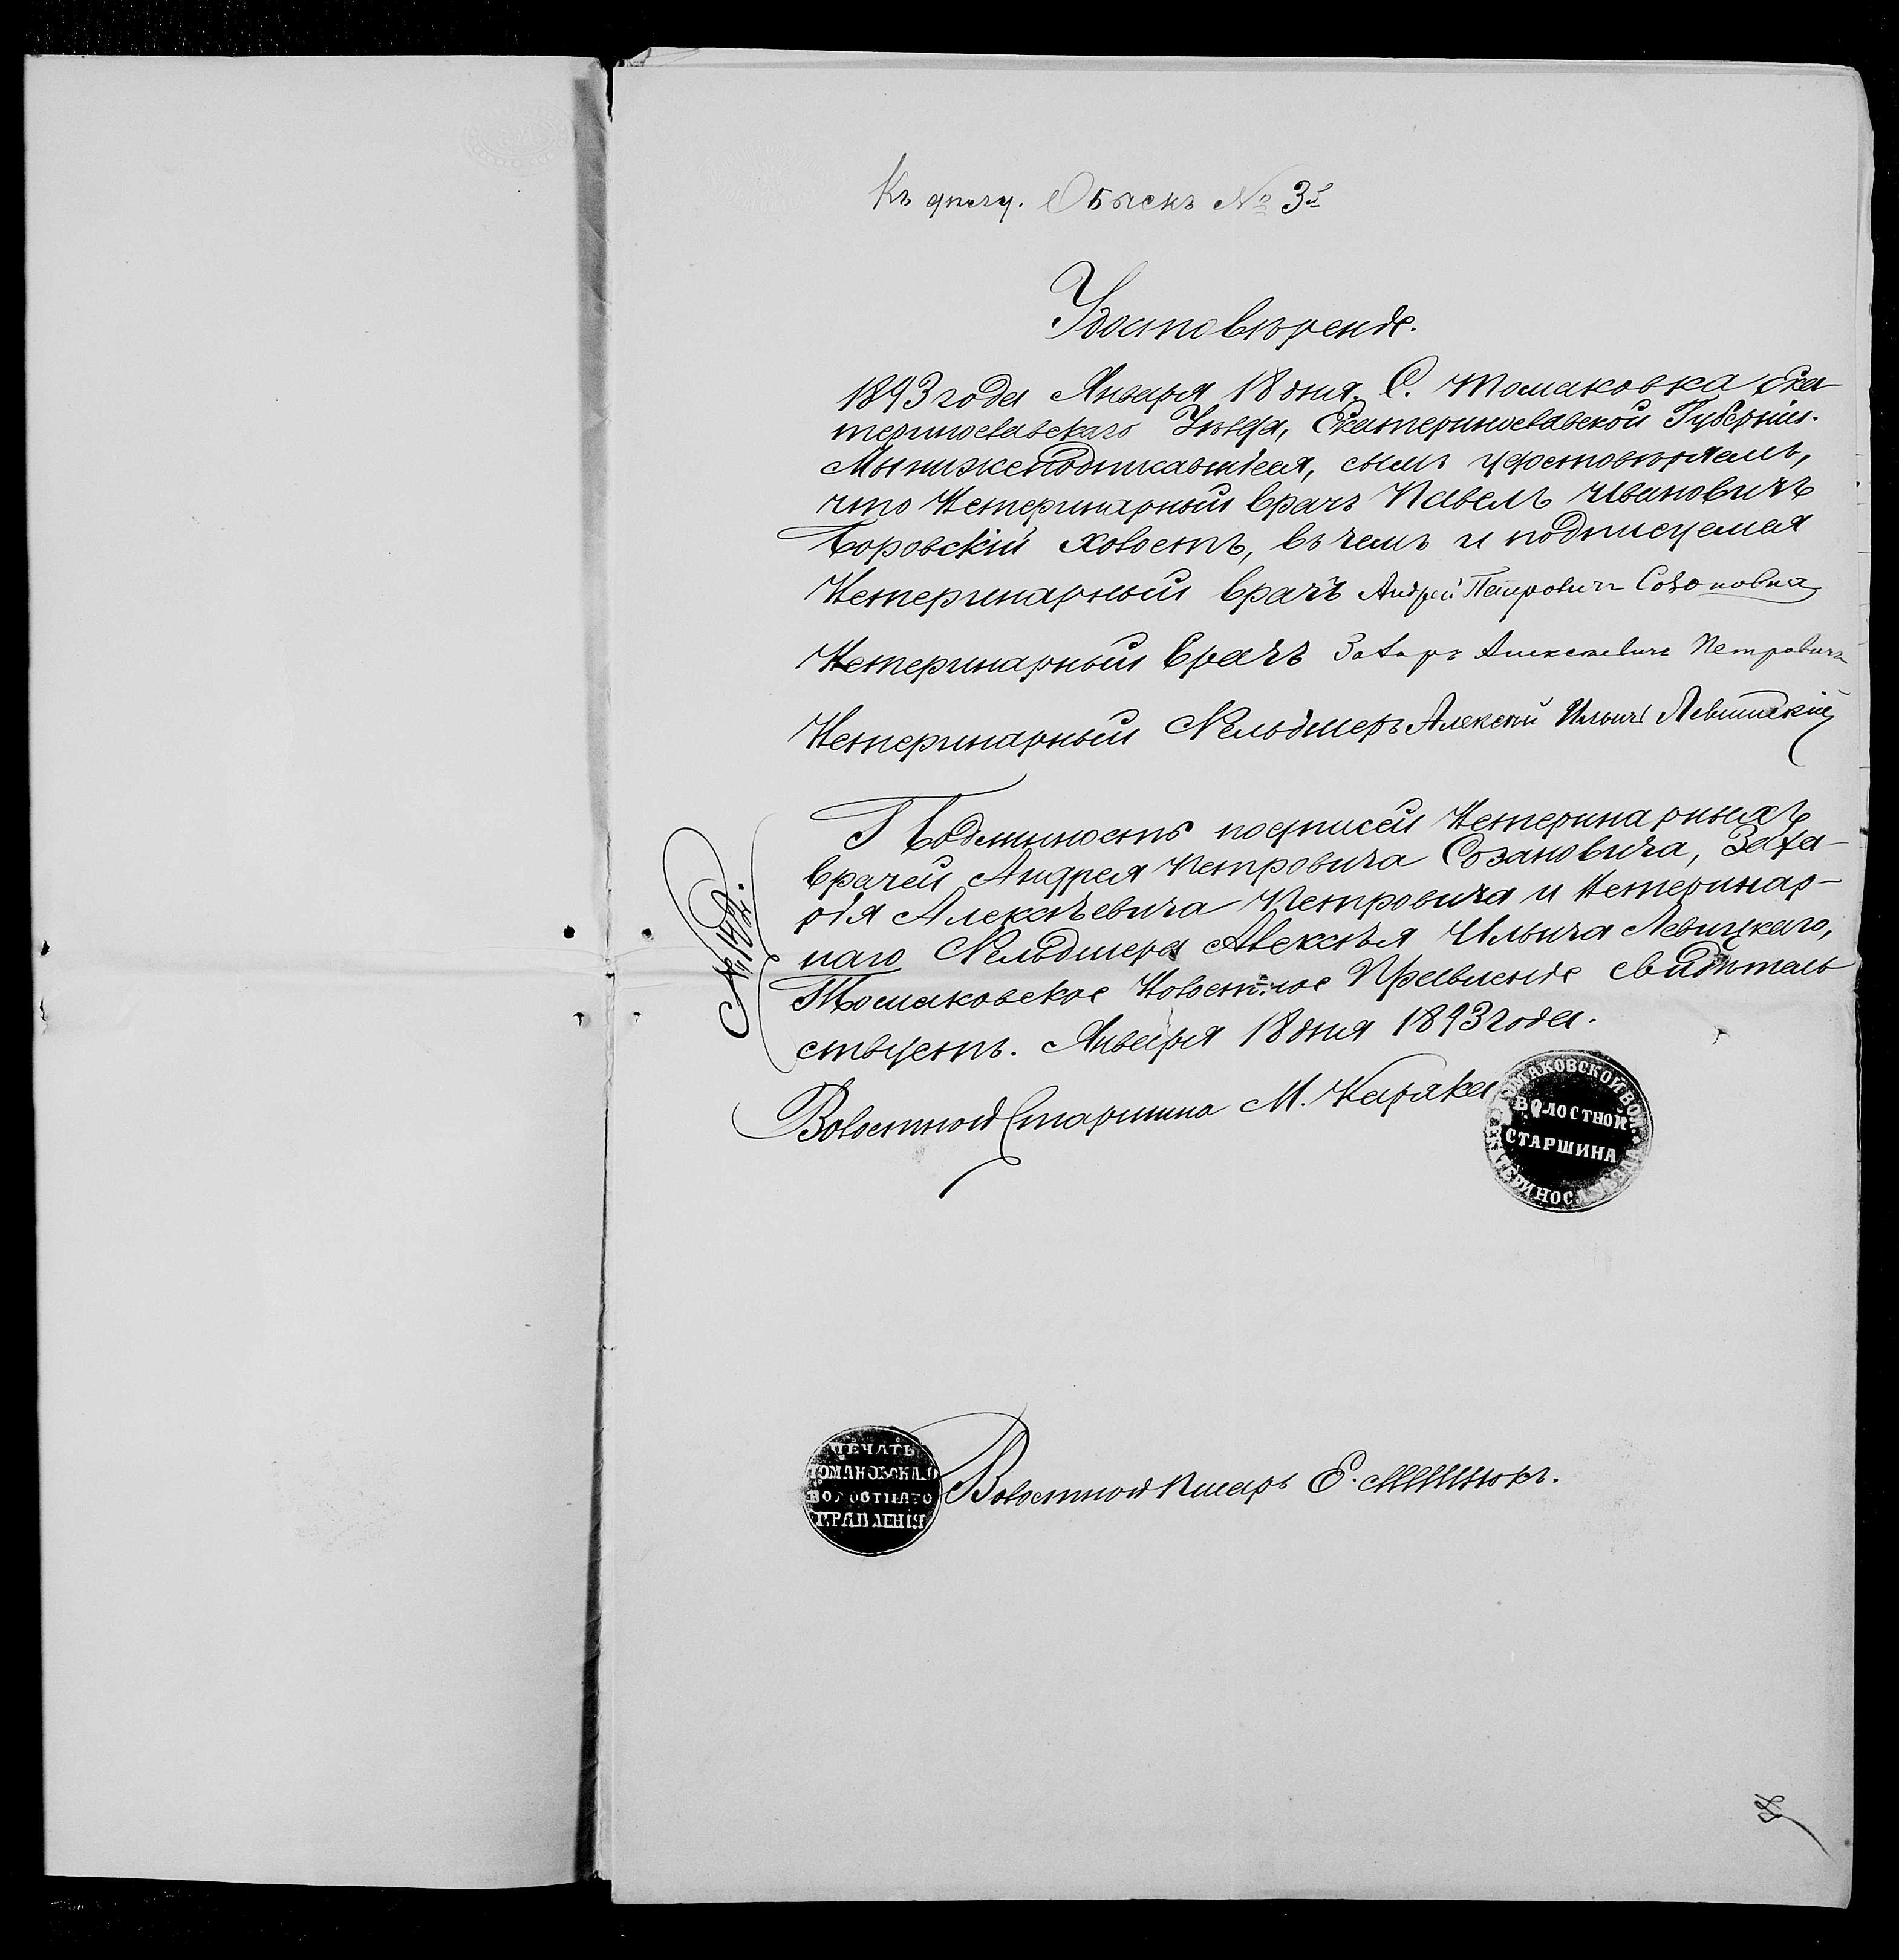 Къ брач. Обыскъ № 3й
Удостовѣреніе.
1893 года Января 18 дня. С. Томаковка Ека-
теринославскаго Уѣзда, Екатеринославской Губерніи.
Мы нижеподписавшіеся, симъ удостовѣряемъ,
что Ветеринарный врачъ Павелъ Ивановичъ
Боровскій холостъ, въ чемъ и подписуемся
Ветеринарный врачъ Андрей Петровичъ Созоновичъ
Ветеринарный врачъ Захаръ Алексѣевичъ Петровичъ
Ветеринарный Фельдшеръ Алексѣй Ильичъ Левитскій
Подлинность подписей Ветеринарныхъ
врачей Андрея Петровича Созановича, Заха-
рія Алексѣевича Петровича и Ветеринар-
наго Фельдшера Алексѣя Ильича Левицкаго,
Томаковское Волостное Правленіе свидѣтель
ствуетъ. Января 18 дня 1893 года.
Волостной Старшина М. Каряка
ТОМАКОВСКОЙ ВОЛ.
ВОЛОСТНОЙ
СТАРШИНА
ЕКАТЕРИНОСЛ.
ПЕЧАТЬ
ТОМАКОВСКАГО
ВОЛОСТНАГО
ПРАВЛЕНІЯ
Волостной Писарь Е.